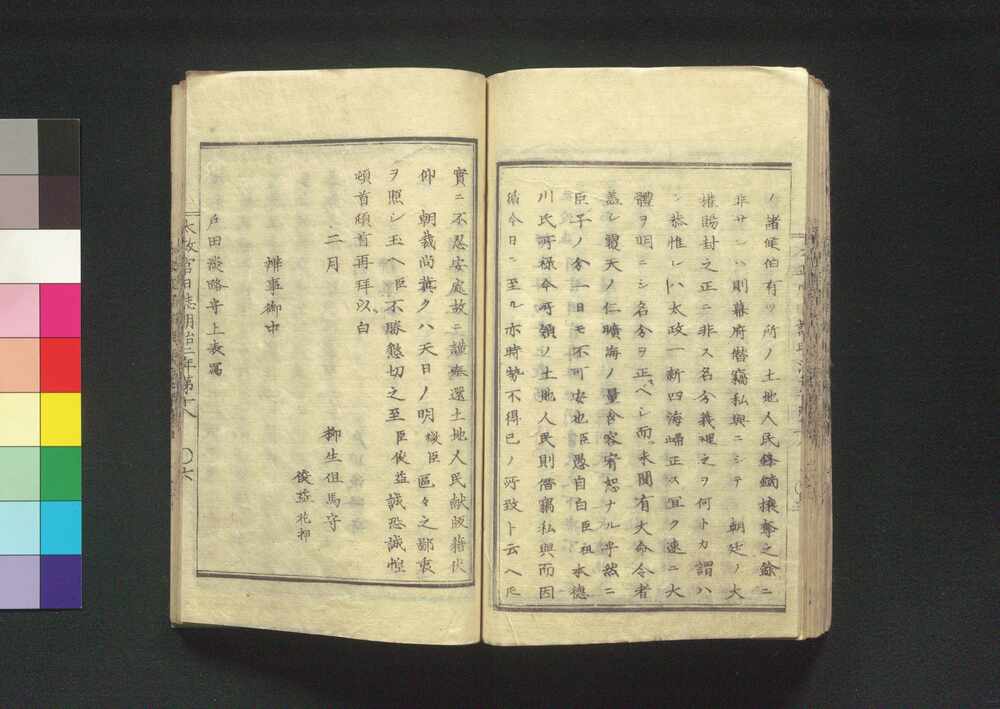 ノ諸侯伯有ツ所ノ土地人民鋒鏑攘奪之餘ニ
非サレハ則幕府僭竊私與ニシテ 朝廷ノ大
権賜封之正ニ非ス名分義理之ヲ何トカ謂ハ
ン恭惟レハ太政一新四海歸正ス宜ク速ニ大
體ヲ明ニシ名分ヲ正スヘシ而未聞有大命令者
蓋シ覆天ノ仁曠海ノ量含容宥恕ナル乎然ニ
臣子ノ分一日モ不可安也臣愚自白臣祖本德
川氏所祿今所領ノ土地人民則僭竊私與而因
循今日ニ至ル亦時勢不得已ノ所致ト云ヘ𪜈
實ニ不忍安處故ニ謹奉還土地人民献版籍伏
仰 朝裁尚冀クハ天日ノ明微臣區々之鄙衷
ヲ照シ玉ヘ臣不勝懇切之至臣俊益誠恐誠惶
頓首頓首再拜以白
二月 柳生但馬守
俊益花押
辨事御中
戸田淡路守上表寫
太政官日誌明治二年第十八 〇六